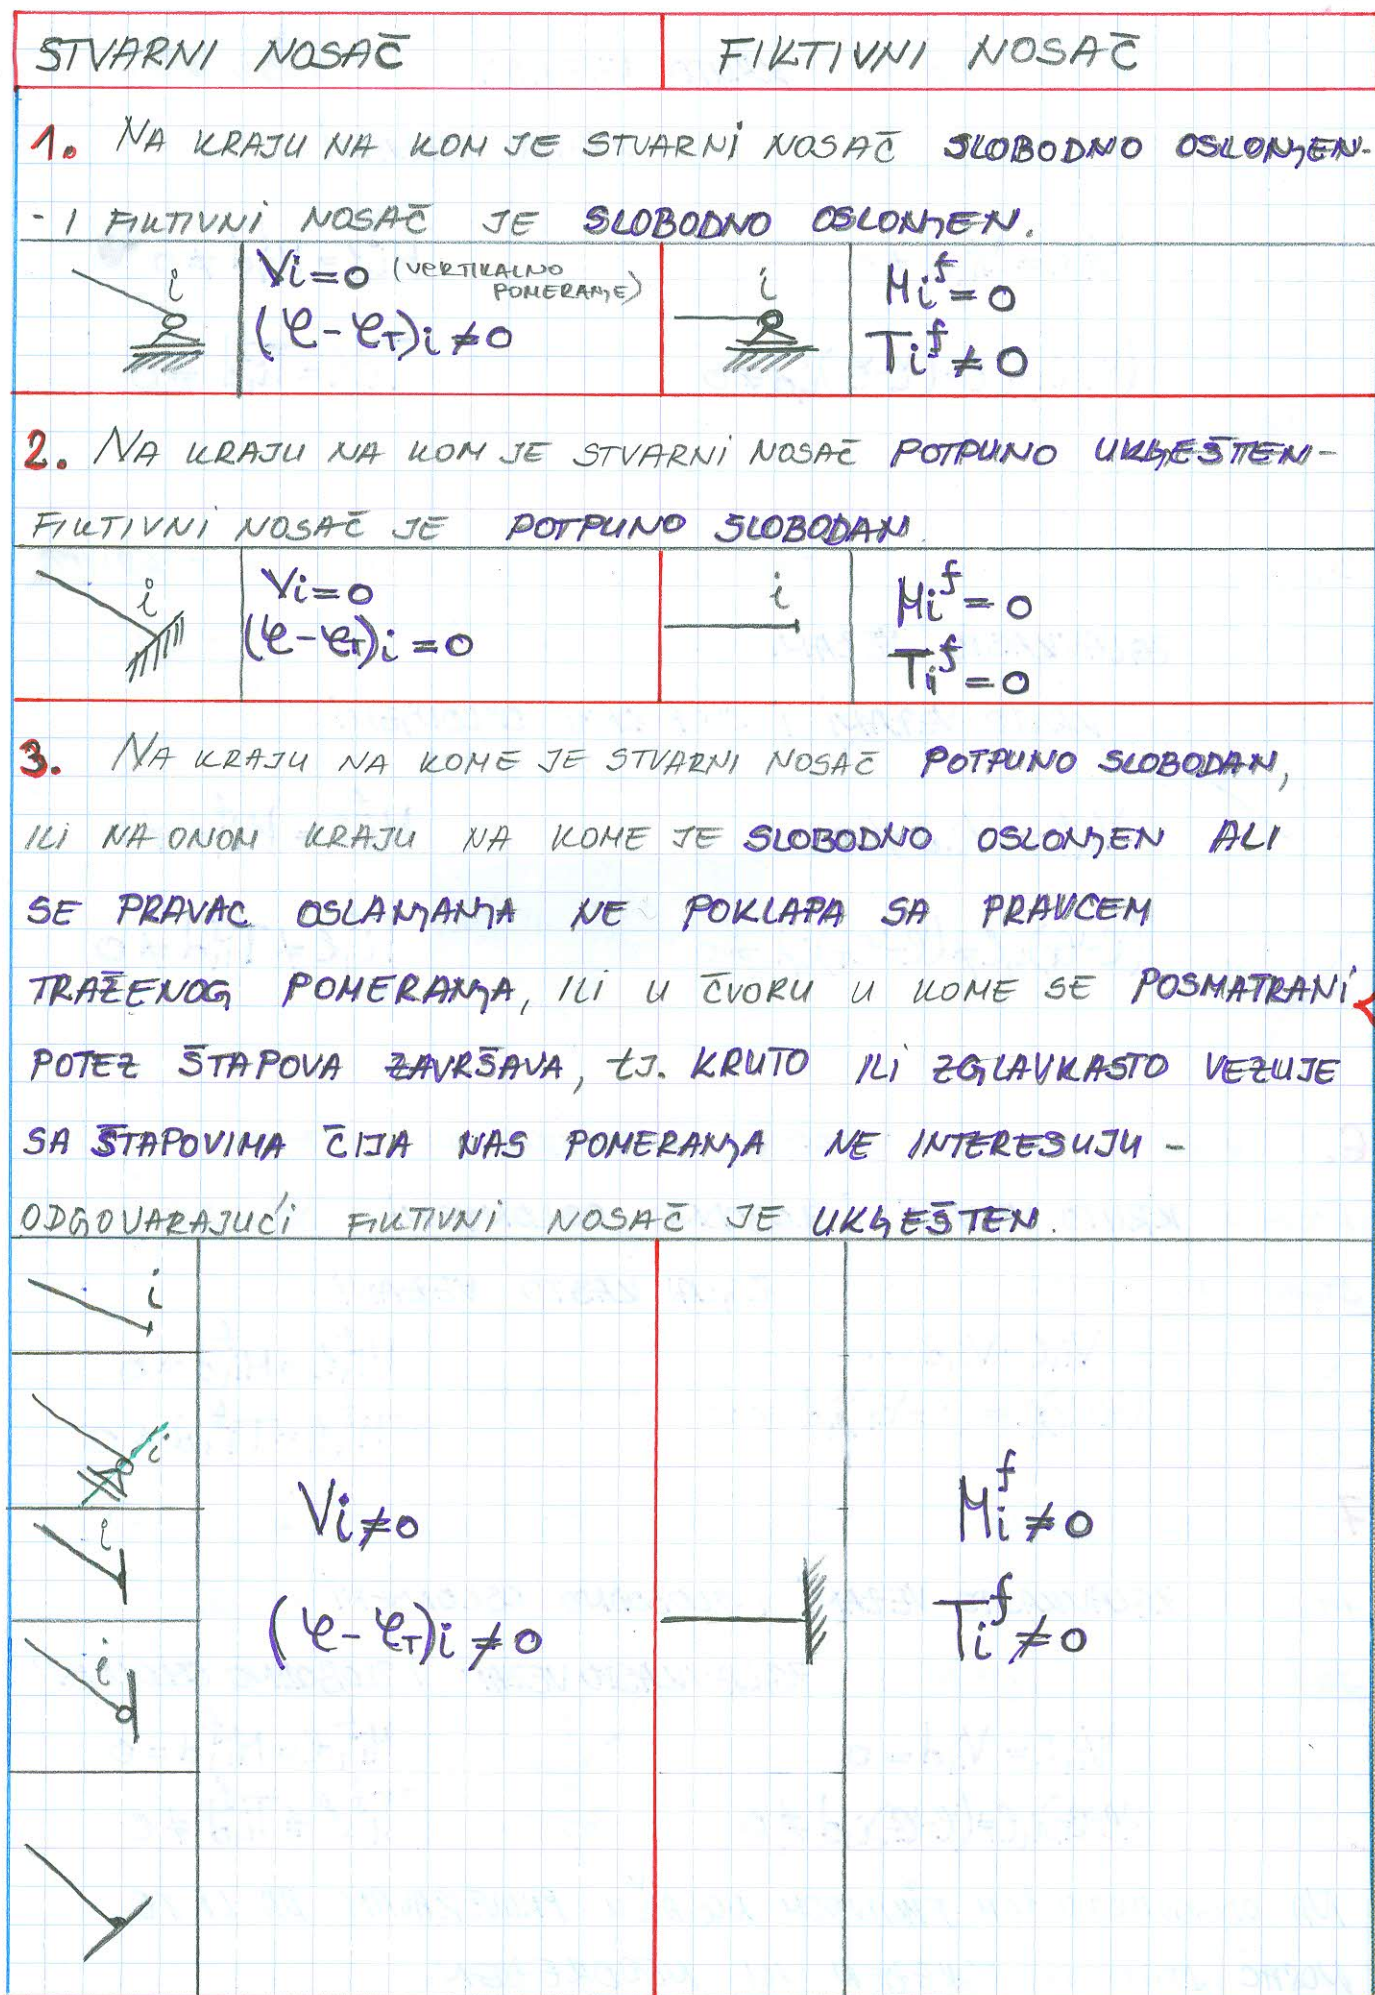 STVARNI NOSAČ FIKTIVNI NOSAČ
1. NA KRAJU NA KOM JE STVARNI NOSAČ SLOBODNO OSLONJEN-
- I FIKTIVNI NOSAČ JE SLOBODNO OSLONJEN.
i Vi=0 (VERTIKALNO POMERANJE) i Mi^f=0
(φ-φT)i≠0 Ti^f≠0
2. NA KRAJU NA KOM JE STVARNI NOSAČ POTPUNO UKLJEŠTEN-
FIKTIVNI NOSAČ JE POTPUNO SLOBODAN.
i Vi=0 i Mi^f=0
(φ-φT)i=0 Ti^f=0
3. NA KRAJU NA KOME JE STVARNI NOSAČ POTPUNO SLOBODAN,
ILI NA ONOM KRAJU NA KOME JE SLOBODNO OSLONJEN ALI
SE PRAVAC OSLANJANJA NE POKLAPA SA PRAVCEM
TRAŽENOG POMERANJA, ILI U ČVORU U KOME SE POSMATRANI
POTEZ ŠTAPOVA ZAVRŠAVA, tJ. KRUTO ILI ZGLAVKASTO VEZUJE
SA ŠTAPOVIMA ČIJA NAS POMERANJA NE INTERESUJU -
ODGOVARAJUĆI FIKTIVNI NOSAČ JE UKLJEŠTEN.
i
i
Vi≠0 Mi^f≠0
i
(φ-φT)i≠0 Ti^f≠0
i